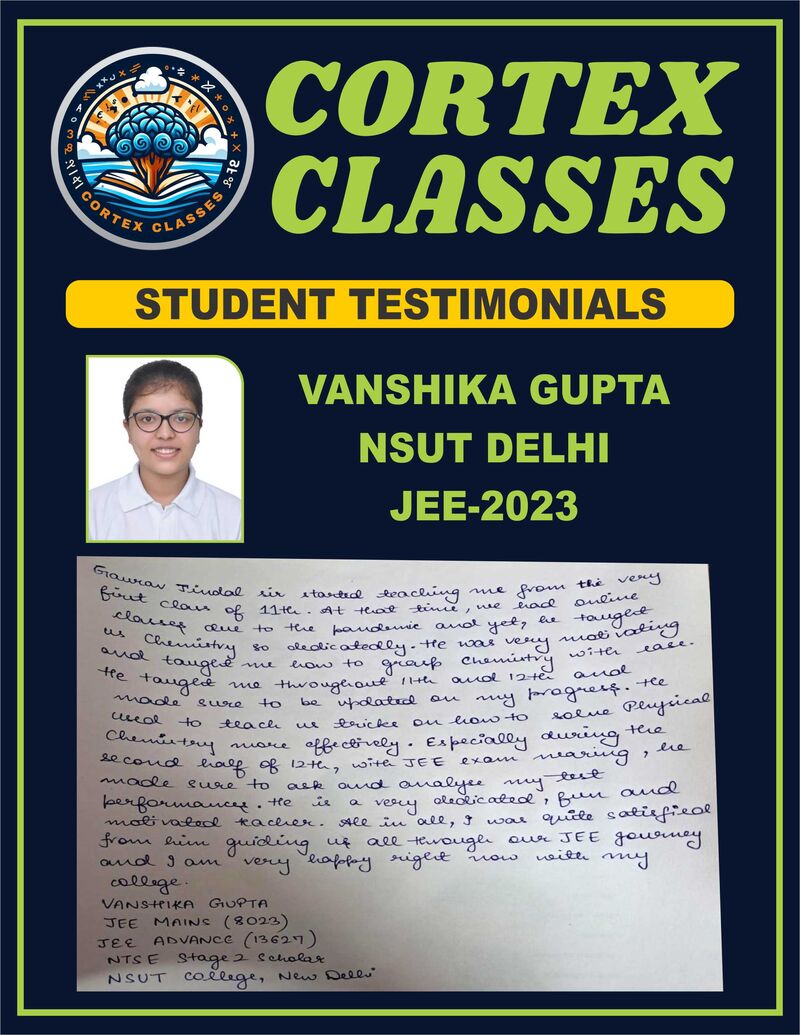 CORTEX CLASSES
CORTEX
CLASSES
STUDENT TESTIMONIALS
VANSHIKA GUPTA
NSUT DELHI
JEE-2023
Gaurav Jindal sir started teaching me from the very
first class of 11th. At that time, we had online
classes due to the pandemic and yet, he taught
us Chemistry so dedicatedly. He was very motivating
and taught me how to grasp Chemistry with ease.
He taught me throughout 11th and 12th and
made sure to be updated on my progress. He
used to teach us tricks on how to solve Physical
Chemistry more effectively. Especially during the
second half of 12th, with JEE exam nearing, he
made sure to ask and analyse my test
performances. He is a very dedicated, fun and
motivated teacher. All in all, I was quite satisfied
from him guiding us all through our JEE journey
and I am very happy right now with my
college.
VANSHIKA GUPTA
JEE MAINS (8023)
JEE ADVANCE (13627)
NTSE Stage 2 Scholar
NSUT College, New Delhi